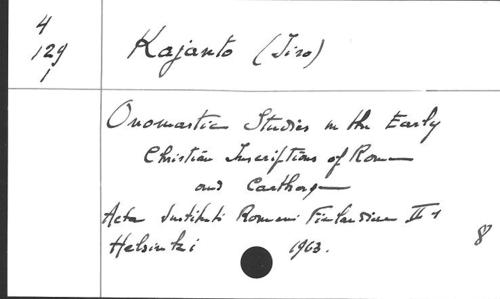 4
129
1
Kajanto (Iiro)
Onomastic Studies in the Early
Christian Inscriptions of Rome
and Carthage
Acta Instituti Romani Finlandiae II 1
Helsinki 1963.
8